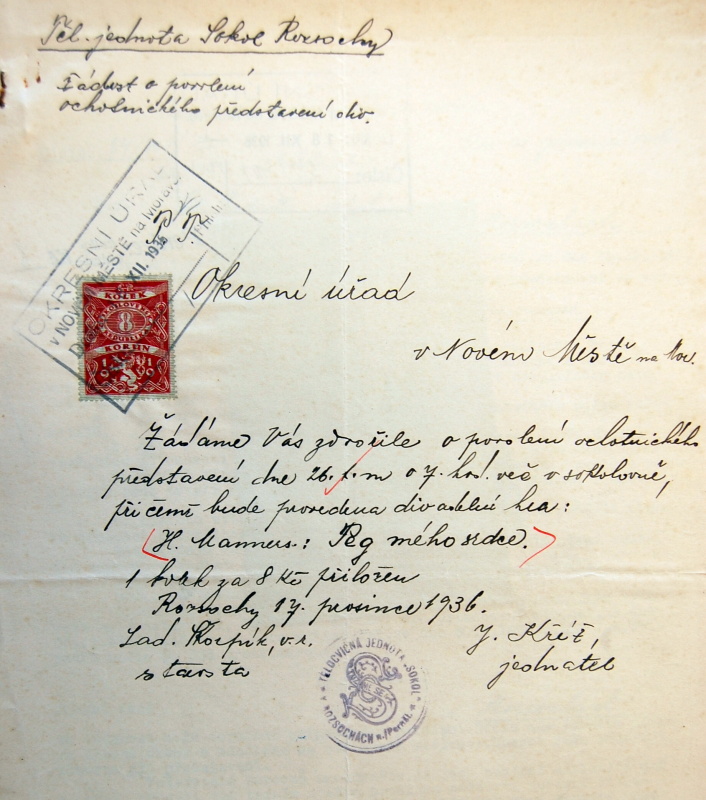 Těl. jednota Sokol Rozsochy
Žádost o povolení
ochotnického představení div.
OKRESNÍ ÚŘAD
v NOVÉM MĚSTĚ na Moravě
XII. 1936
P. T.
KOLEK
8
KORUN
Okresní úřad
v Novém Městě na Mor.
Žádáme Vás zdvořile o povolení ochotnického
představení dne 26. t. m o 7. hod. več v sokolovně,
při čemž bude provedena divadelní hra:
H. Manners: Peg mého srdce.
1 kolek za 8 Kč přiložen
Rozsochy 17. prosince 1936.
Lad. Škorpík, v. r.
J. Kříž,
starosta
jednatel
TĚLOCVIČNÁ JEDNOTA „SOKOL"
V ROZSOCHÁCH n./Pernšt.